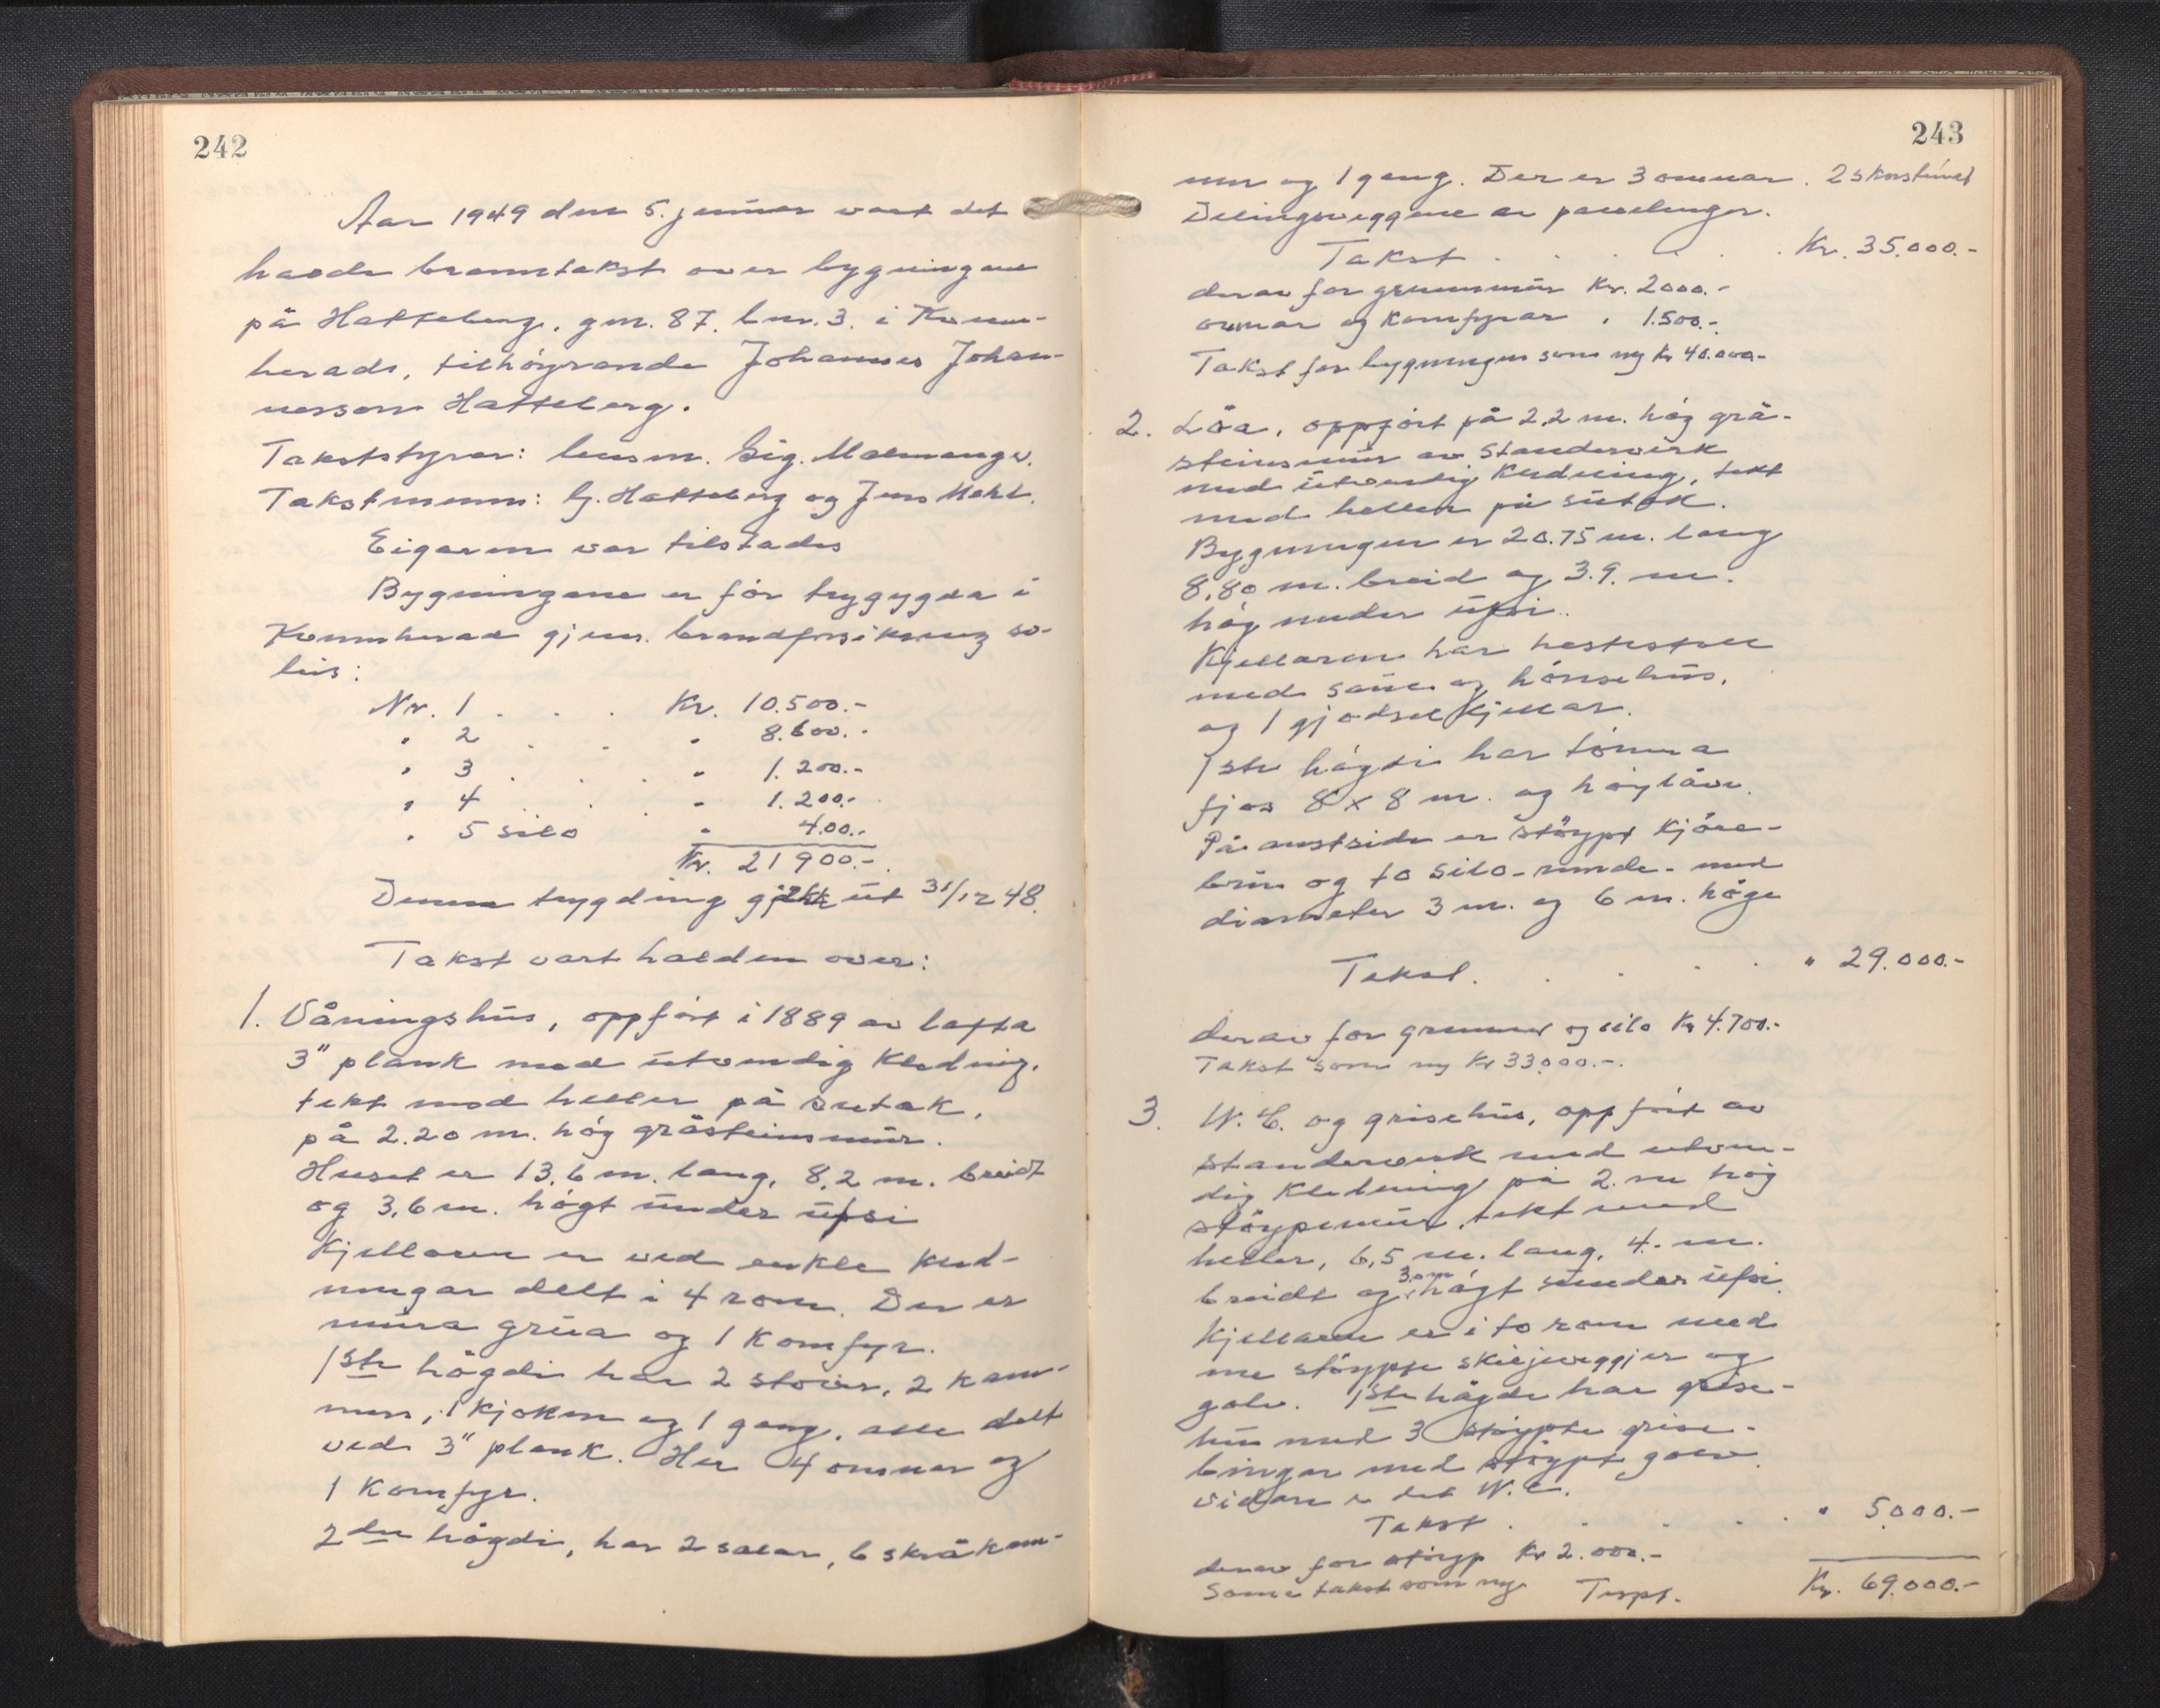 242
Aar 1949 den 5. januar vart det
halde branntakst over bygningane
på Hatteberg, gnr. 87, bnr. 3. i Kvinn-
herads, tilhöyrande Johannes Johan-
nesson Hatteberg.
Takststyrar: lensm. Sig. Malmanger.
Takstmenn: G. Hatteberg og Jens Mehl.
Eigaren var tilstades
Bygningane er för trygygda i
Kvinnherad gjens. brandforsikring so-
leis:
Nr. 1 . . . Kr. 10.500.-
" 2 . . " 8.600.-
" 3 . . . " 1.200.-
" 4 . . . " 1.200.-
" 5 silo " 400.-
Kr. 21900.-
Denne trygding gjekk ut 31/12 48.
Takst vart halden over:
1. Våningshus, oppfört i 1889 av lafta
3" plank med utvendig kledning,
tekt med heller på sutak,
på 2.20 m. hög gråsteinsmur.
Huset er 13,6 m. lang, 8,2 m. breidt
og 3,6 m. högt under ufsi
Kjellaren er ved enkle kled-
ningar delt i 4 rom. Der er
mura grua og 1 komfyr.
1ste högdi har 2 stover, 2 kam-
mers, 1 kjöken og 1 gang, alle delt
ved 3" plank. Her 4 omnar og
1 komfyr.
2den högdi, har 2 salar, 6 skråkam-
243
mer og 1 gang. Der er 3 omnar. 2 skorsteinar
Delingsveggene er panelinger.
Takst . . . . . Kr. 35.000.-
derav for grunnmur Kr. 2000.-
omnar og komfyrar " 1.500.-
Takst for bygningen som ny Kr 40.000.-
2. Löa, oppfört på 2,2 m. hög grå-
steinsmur av standerverk
med utvendig kledning, tekt
med heller på sutak.
Bygningen er 20.75 m. lang
8,80 m. breid og 3.9. m.
hög under ufsi.
Kjellaren har hestestall
med saue og hönsehus,
og 1 gjödselkjellar.
1ste högdi har tömra
fjos 8 x 8 m. og höylåve.
På austside er stöypt kjöre-
bru og to silo-runde- med
diameter 3 m. og 6 m. höge
Takst. . . . . " 29.000.-
derav for grunnmur og silo Kr 4.700.-
Takst som ny Kr 33.000.-.
3. W.C. og grisehus, oppfört av
standerverk med utven-
dig kledning på 2. m hög
stöypemur, tekt med
heller, 6,5 m. lang, 4.- m.
breidt og 3.0 m högt under ufsi.
Kjellaren er i to rom med
me stöypte skiljeveggjer og
golv. 1ste högde har grise-
hus med 3 stöypte grise-
bingar med stöypt golv.
vidare er det W.C.
Takst . . . . . " 5.000.-
derav for stöyp Kr 2.000.-
Same takst som ny. Tspt. Kr. 69.000.-